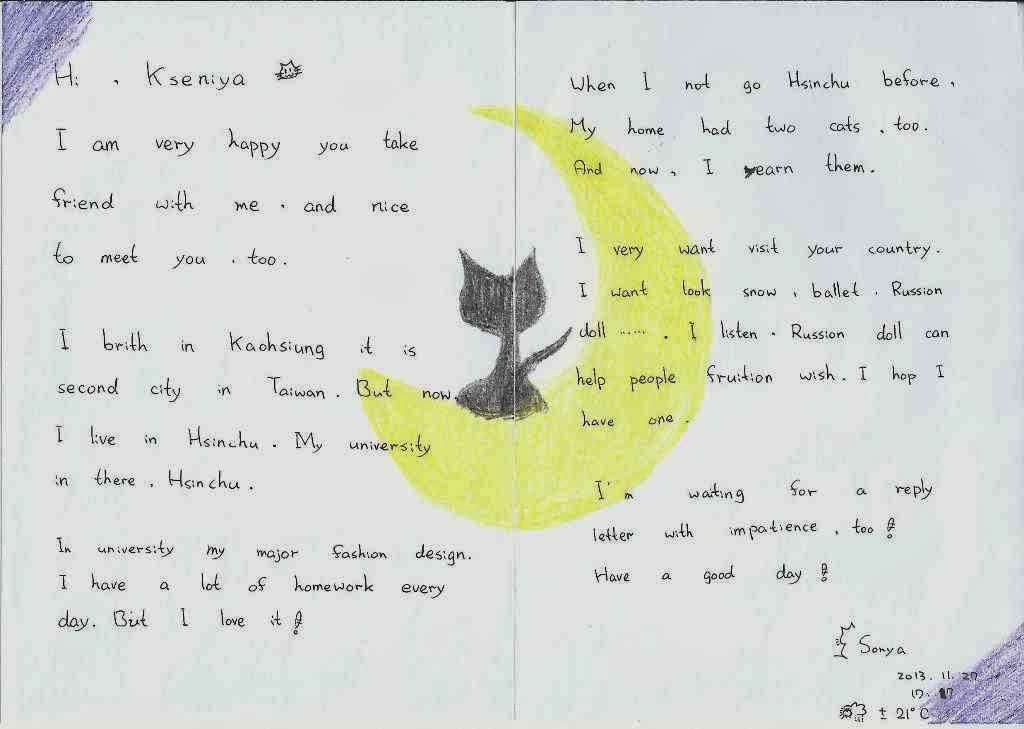 Hi , Kseniya
I am very happy you take
friend with me . and nice
to meet you . too .
I brith in Kaohsiung it is
second city in Taiwan . But now.
I live in Hsinchu . My university
in there . Hsinchu .
In university my major fashion design.
I have a lot of homework every
day. But I love it !
When I not go Hsinchu before .
My home had two cats . too .
And now , I yearn them .
I very want visit your country .
I want look snow , ballet . Russion
doll ...... . I listen . Russion doll can
help people fruition wish . I hop I
have one .
I'm waiting for a reply
letter with impatience , too !
Have a good day !
Sonya
2013 . 11. 27
± 21°C